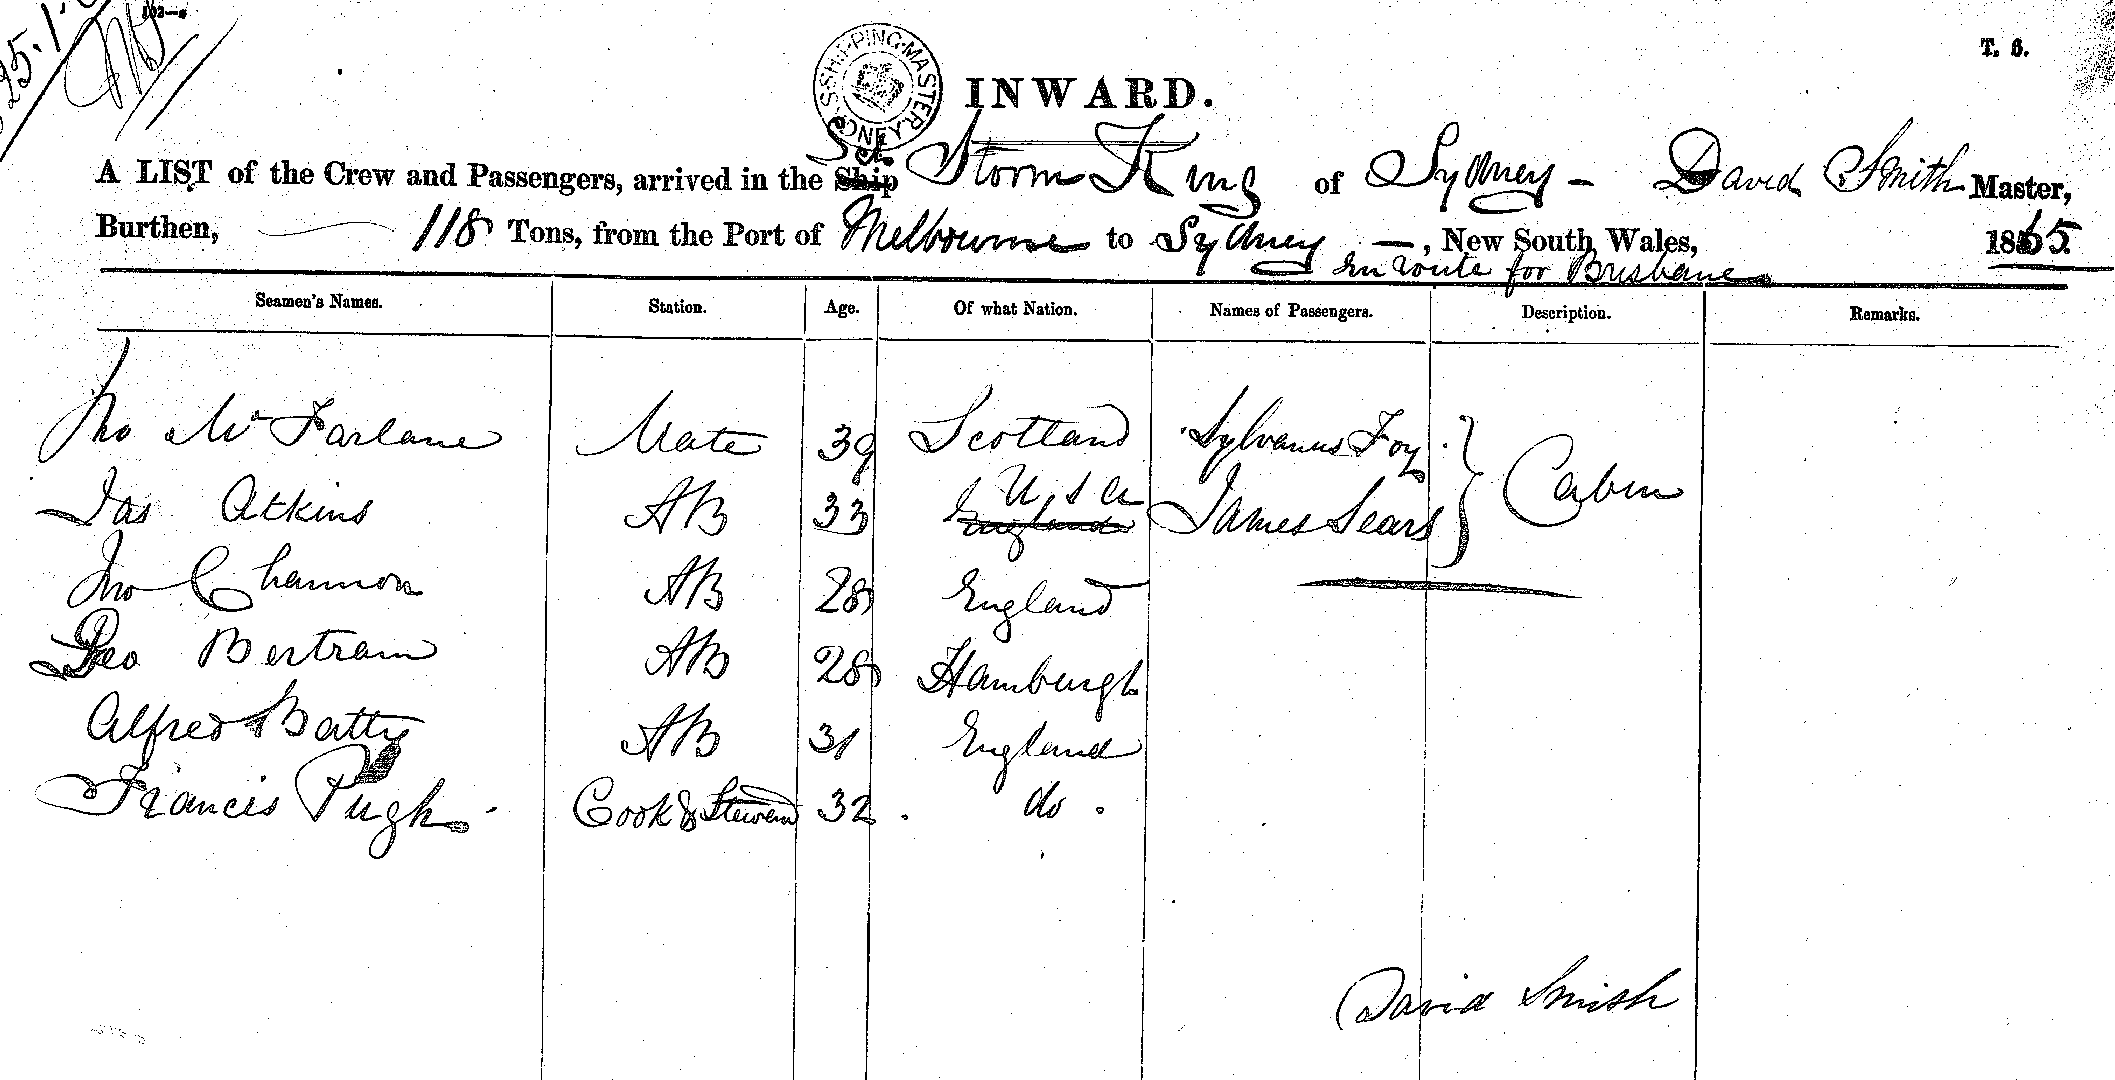 103—s
25.1.
T. 6.
SHIPPING MASTER SYDNEY
INWARD.
Sch
A LIST of the Crew and Passengers, arrived in the Ship Storm King of Sydney - David Smith Master,
Burthen, 118 Tons, from the Port of Melbourne to Sydney —, New South Wales, 1865
En route for Brisbane
Seamen's Names. Station. Age. Of what Nation. Names of Passengers. Description. Remarks.
Jno McFarlane Mate 39 Scotland Sylvanus Foy Cabin
U S A
Jas Atkins AB 33 England James Sears
Jno Channon AB 28 England
Geo Bertram AB 28 Hamburgh
Alfred Batty AB 31 England
Francis Pugh Cook & Steward 32 do
David Smith